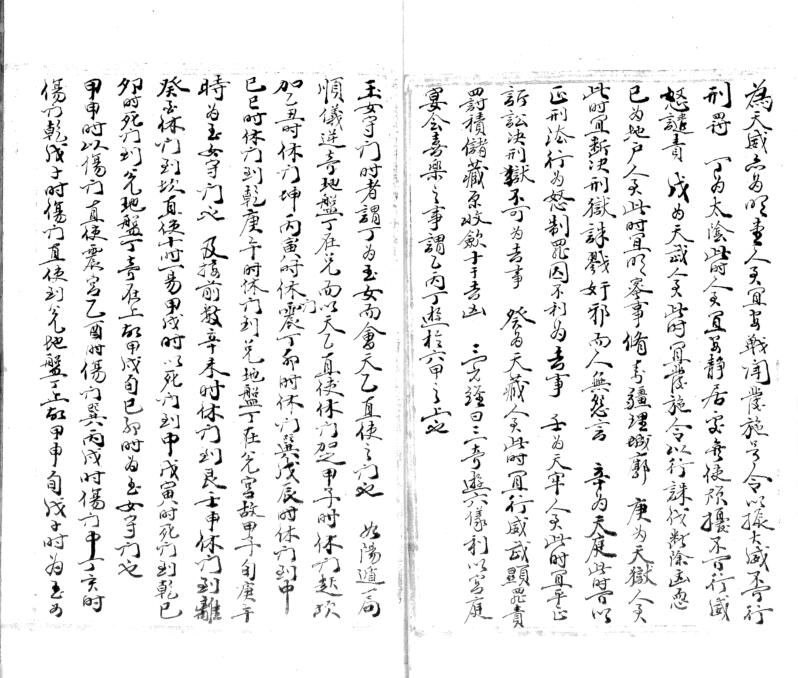 為天威亦為明堂人君宜出戰鬪發施号令以振大威不可行
刑罰　丁為太陰此時人君宜安靜居處無使煩擾不可行威
怒譴責　戊為天武人君此時宜發施令以行誅伐斷除凶惡
己為地户人君此時宜明察事修封疆理城廓　庚為天獄人君
此時宜斷決刑獄誅戮奸邪而人無怨言　辛為天庭此時可以
正刑法行為怒制罪囚不利為吉事　壬為天牢人君此時宜平正
訴訟決刑獄不可為吉事　癸為天藏人君此時宜行威武顯罪責
罰積儲藏 收斂十干吉凶　三元經曰三奇遊六儀利以宮庭
宴會喜樂之事謂乙丙丁遊於六甲之上也
玉女守門時者謂丁為玉女而會天乙直使之門也　如陽遁一局
順儀逆奇地盤丁在兌而以天乙直使休門加之甲子時休門起坎
加乙丑時休門坤丙寅時休門震丁卯時休門巽戊辰時休門到中
己巳時休門到乾庚午時休門到兌地盤丁在兌宮故甲子旬庚午
時為玉女守門也　及接前數辛未時休門到艮壬申休門到離
癸酉休門到坎直使十時一易甲戌時以死門到中戊寅時死門到乾己
卯時死門到兌地盤丁奇在上故甲戌旬己卯時為玉女守門也
甲申時以傷門直使震宮乙酉時傷門巽丙戌時傷門中丁亥時
傷門乾戊子時傷門直使到兌地盤丁上故甲申旬戊子時為玉女